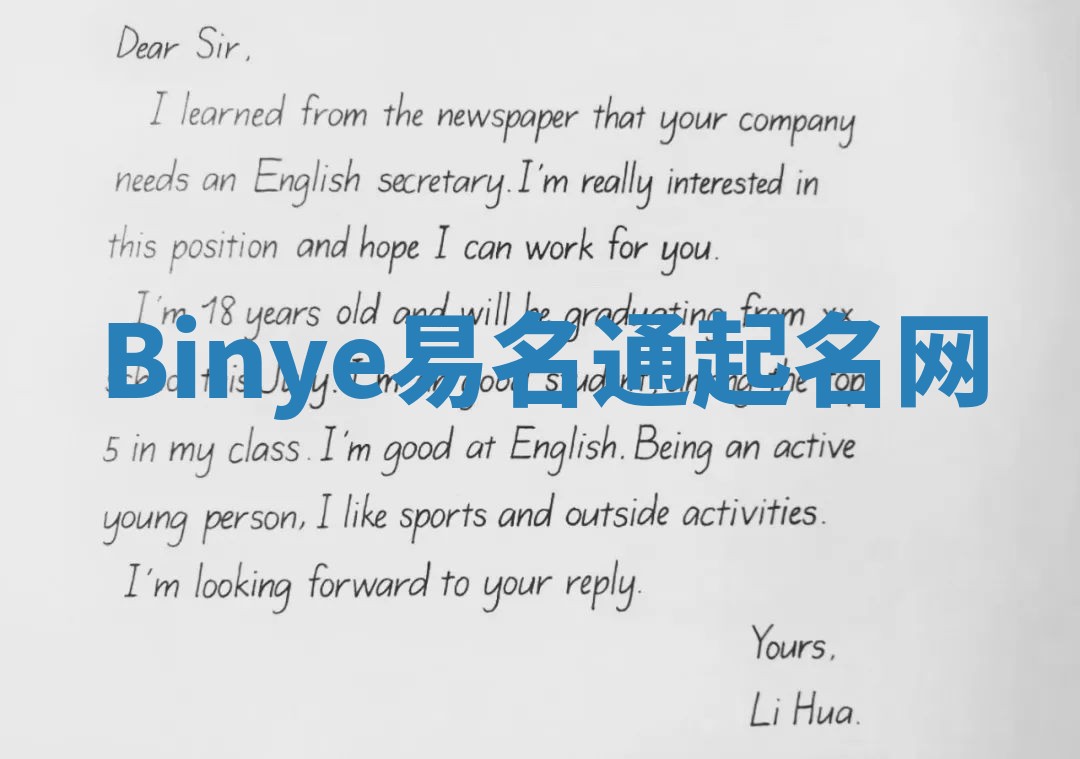 Dear Sir,
I learned from the newspaper that your company
needs an English secretary. I'm really interested in
this position and hope I can work for you.
I'm 18 years old and will be graduating from xx
Binye易名通起名网
school this July. I'm a good student, among the top
5 in my class. I'm good at English. Being an active
young person, I like sports and outside activities.
I'm looking forward to your reply.
Yours,
Li Hua.